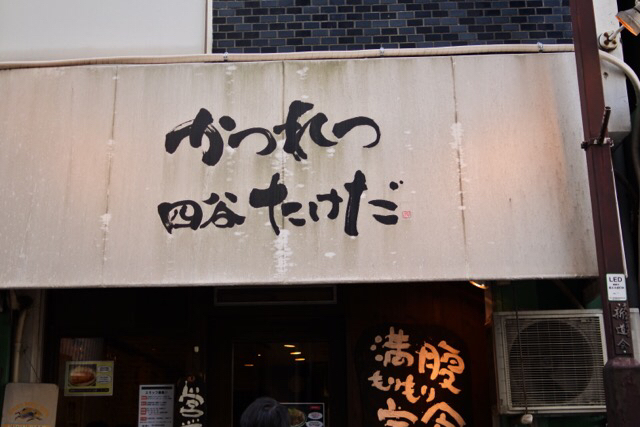 かつれつ
四谷 たけだ
満腹
もりもり
LED
営